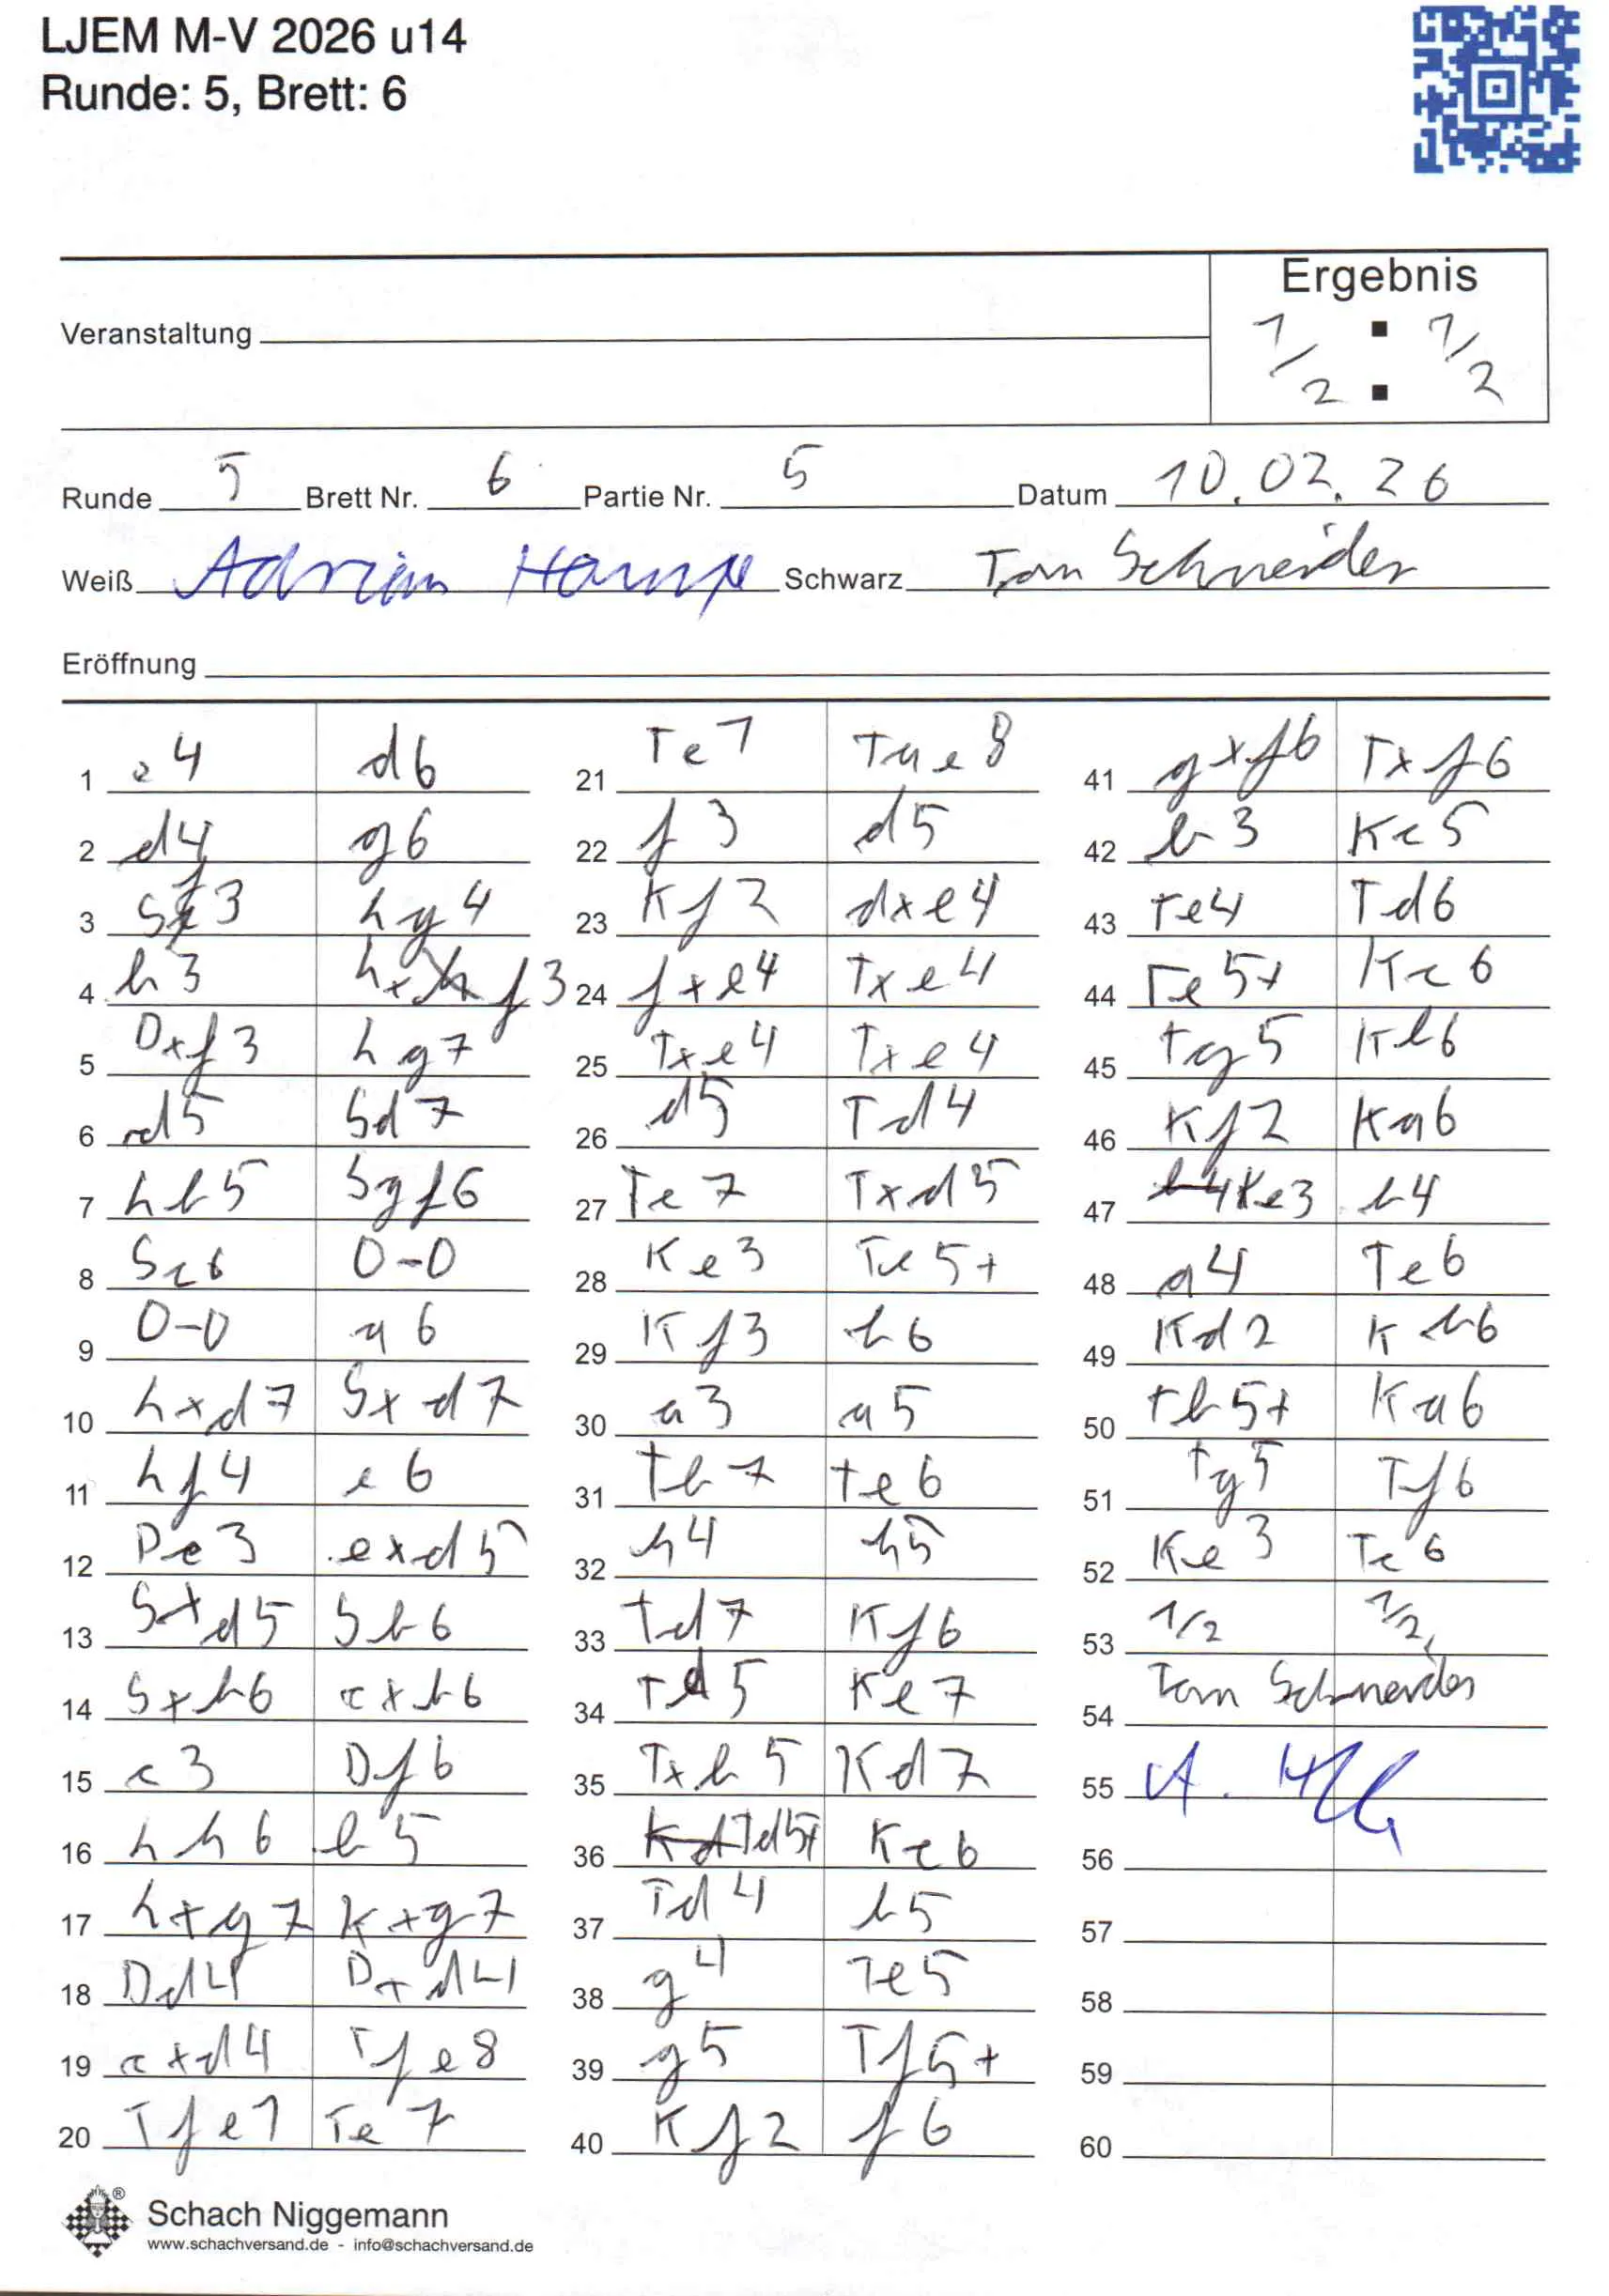 LJEM M-V 2026 u14
Runde: 5, Brett: 6
Ergebnis
1/2 : 1/2
Veranstaltung
Runde 5 Brett Nr. 6 Partie Nr. 5 Datum 10.02.26
Weiß Adrian Schwarz Tom Schneider
Eröffnung
1 e4 d6
2 d4 g6
3 Sf3 Lg4
4 h3 Lxf3
5 Dxf3 Lg7
6 d5 Sd7
7 Lb5 Sgf6
8 Sc6 0-0
9 0-0 a6
10 Lxd7 Sxd7
11 Lf4 e6
12 De3 exd5
13 Sxd5 Sb6
14 Sxb6 cxb6
15 c3 Df6
16 Lh6 b5
17 Lxg7 Kxg7
18 Dd4 Dxd4
19 cxd4 Tfe8
20 Tfe1 Te7
21 Te1 Tae8
22 f3 d5
23 Kf2 dxe4
24 fxe4 Txe4
25 Txe4 Txe4
26 d5 Td4
27 Te7 Txd5
28 Ke3 Te5+
29 Kf3 b6
30 a3 a5
31 Tb7 Te6
32 h4 h5
33 Td7 Kf6
34 Td5 Ke7
35 Txb5 Kd7
36 Td5+ Kc6
37 Td4 b5
38 g4 Te5
39 g5 Tf5+
40 Kf2 f6
41 gxf6 Txf6
42 b3 Kc5
43 Te4 Td6
44 Te5+ Kc6
45 Tg5 Kb6
46 Kf2 Ka6
47 Ke3 b4
48 a4 Te6
49 Kd2 Kb6
50 Tb5+ Ka6
51 Tg5 Tf6
52 Ke3 Te6
53 1/2 1/2
54 Tom Schneider
55 A.
56
57
58
59
60
Schach Niggemann
www.schachversand.de - info@schachversand.de